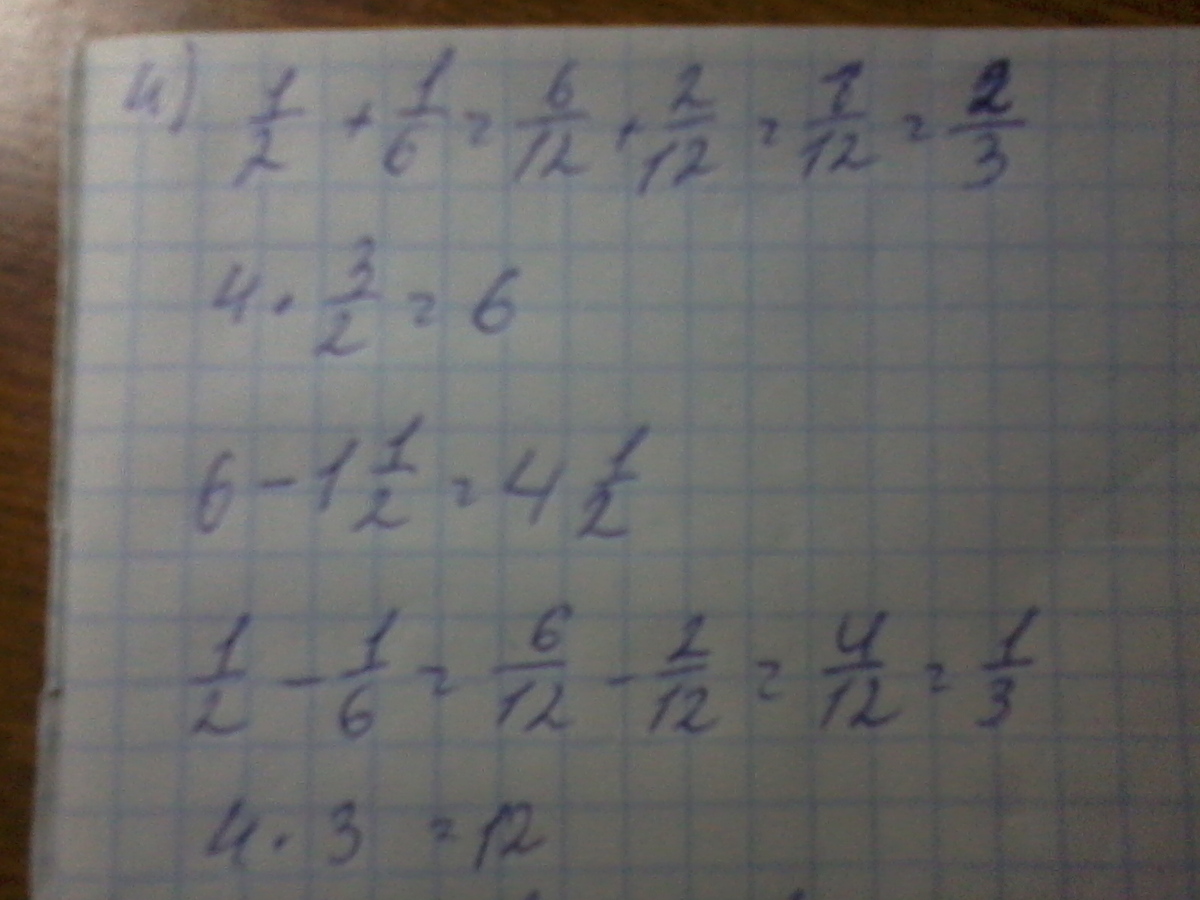 и) 1/2 + 1/6 = 6/12 + 2/12 = 7/12 = 2/3
4 · 3/2 = 6
6 - 1 1/2 = 4 1/2
1/2 - 1/6 = 6/12 - 2/12 = 4/12 = 1/3
4 · 3 = 12